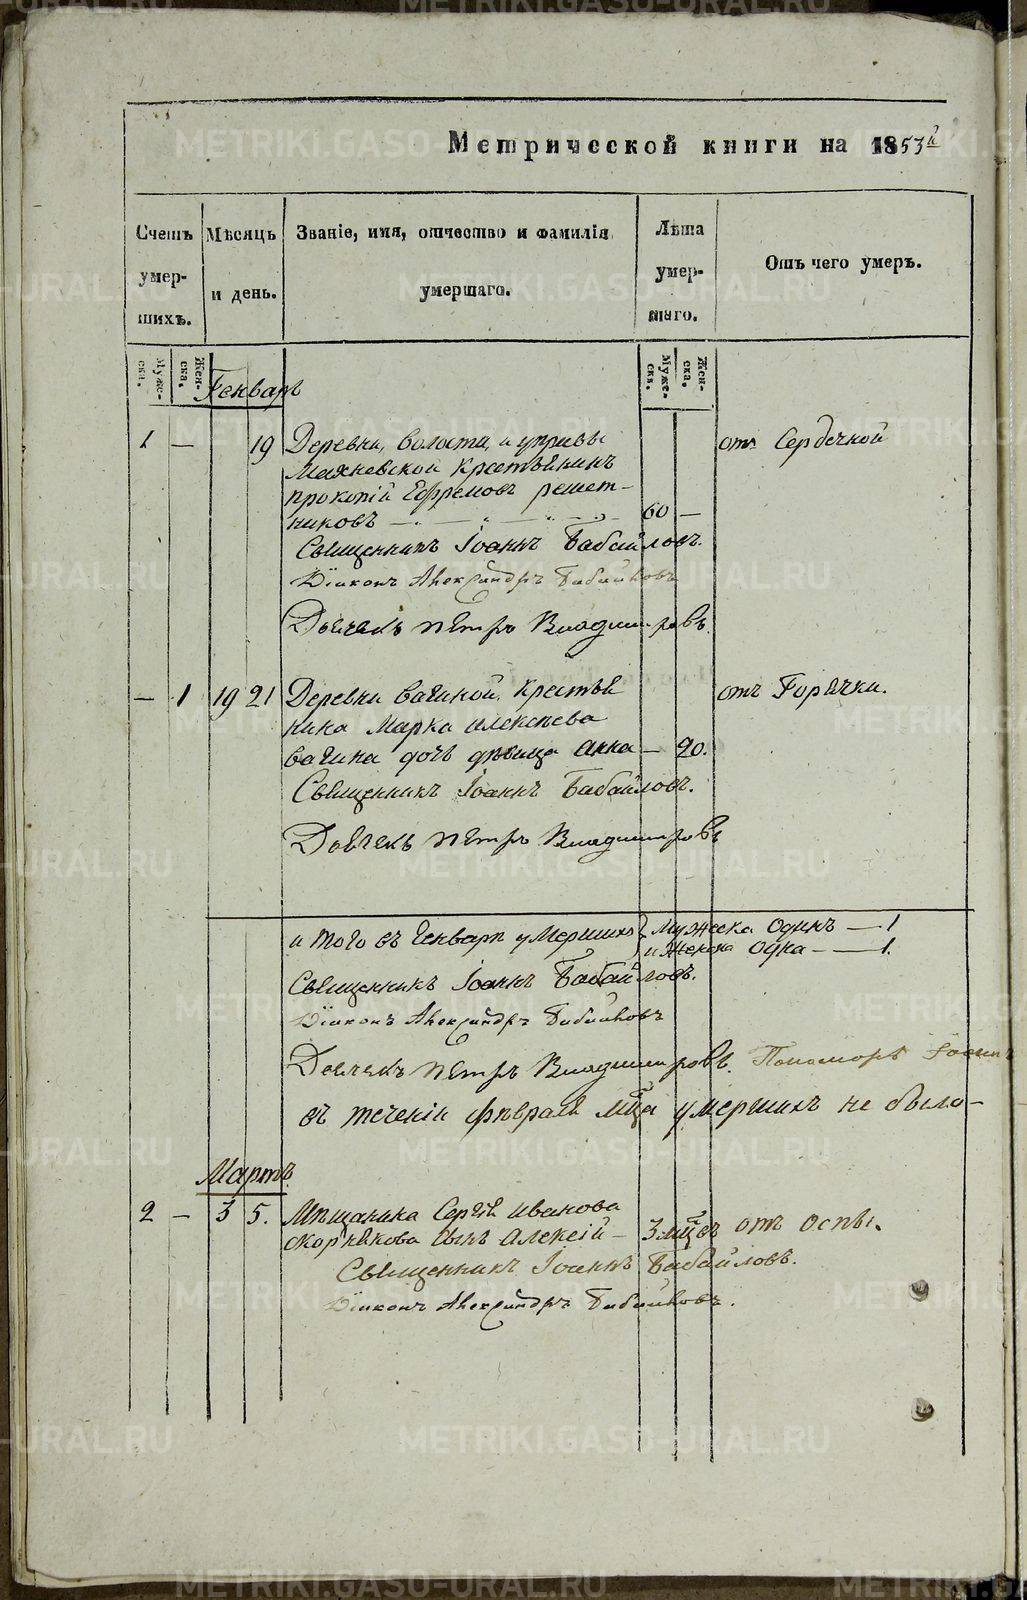 Метрической книги на 1853й
Счетъ умер-шихъ.
Мѣсяць и день.
Званіе, имя, отчество и фамилія умершаго.
Лѣта умер-шаго.
Отъ чего умеръ.
Муже-ска.
Жен-ска.
Генварь
Муже-ска.
Жен-ска.
1 — 19 Деревни, волости, и управы отъ Сердечной
Маяневской Крестьянинъ
прокопій Ефремовъ решет-
никовъ — 60 —
Священникъ Іоаннъ Бабайловъ.
Діаконъ Александръ Бабайловъ
Дьячекъ Петръ Владимировъ.
— 1 19 21 Деревни вагиной Крестья отъ Горячки.
нина Марка алексѣева
вагина дочь дѣвица анна — 20.
Священникъ Іоаннъ Бабайловъ.
Дьячекъ Петръ Владимировъ
и того въ Генварѣ умершихъ } Мужеска одинъ — 1
и Женска одна — 1.
Священникъ Іоаннъ Бабайловъ.
Діаконъ Александръ Бабайловъ
Дьячекъ Петръ Владимировъ. Пономарь
въ теченіи февраля мца умершихъ не было —
Мартъ
2 — 3 5. Мѣщанина Сергѣя иванова
скорнякова сынъ Алексій — 3 мцъ отъ оспы.
Священникъ Іоаннъ Бабайловъ.
Діаконъ Александръ Бабайловъ.
METRIKI.GASO-URAL.RU